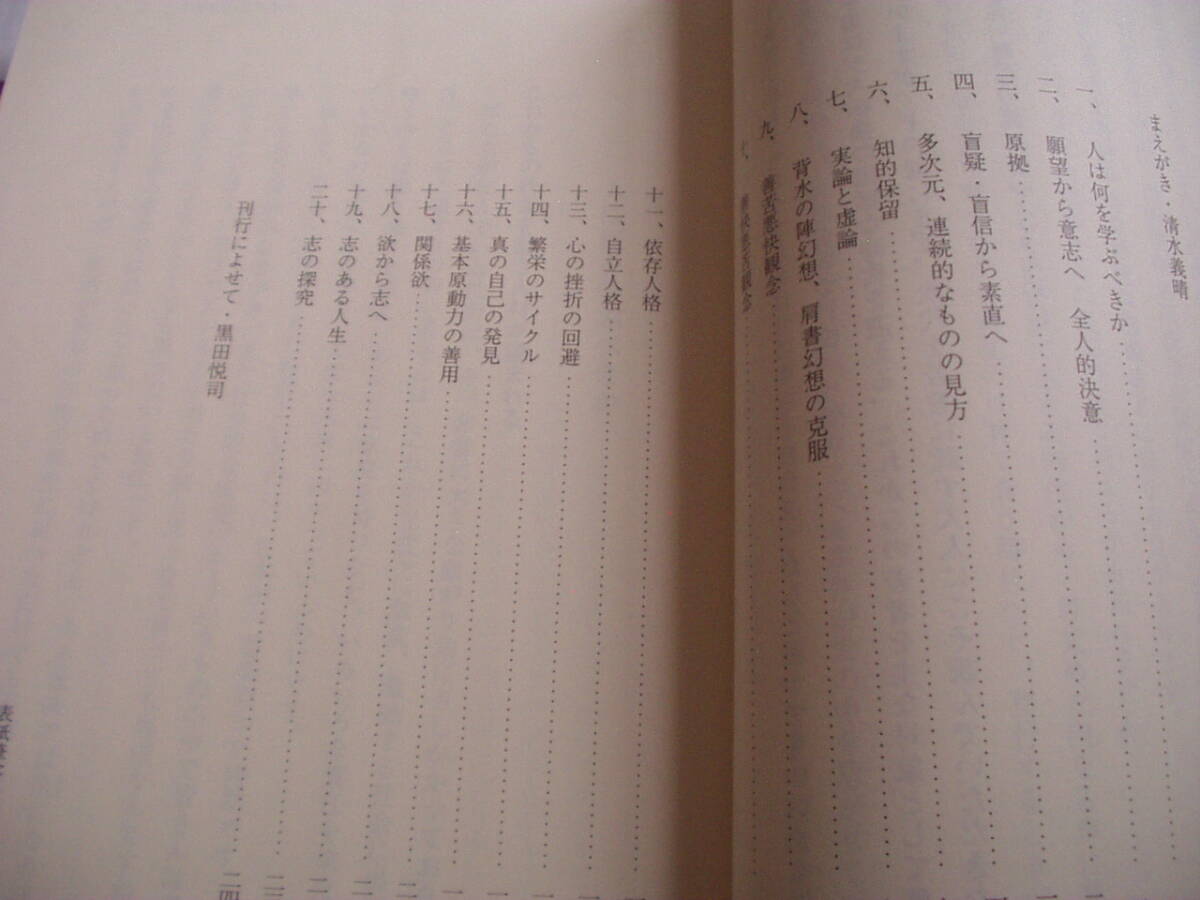 まえがき・清水義晴
一、人は何を学ぶべきか
二、願望から意志へ 全人的決意
三、原拠
四、盲疑・盲信から素直へ
五、多次元、連続的なものの見方
六、知的保留
七、実論と虚論
八、背水の陣幻想、肩書幻想の克服
九、善苦悪快観念
十、
十一、依存人格
十二、自立人格
十三、心の挫折の回避
十四、繁栄のサイクル
十五、真の自己の発見
十六、基本原動力の善用
十七、関係欲
十八、欲から志へ
十九、志のある人生
二十、志の探究
刊行によせて・黒田悦司
表紙